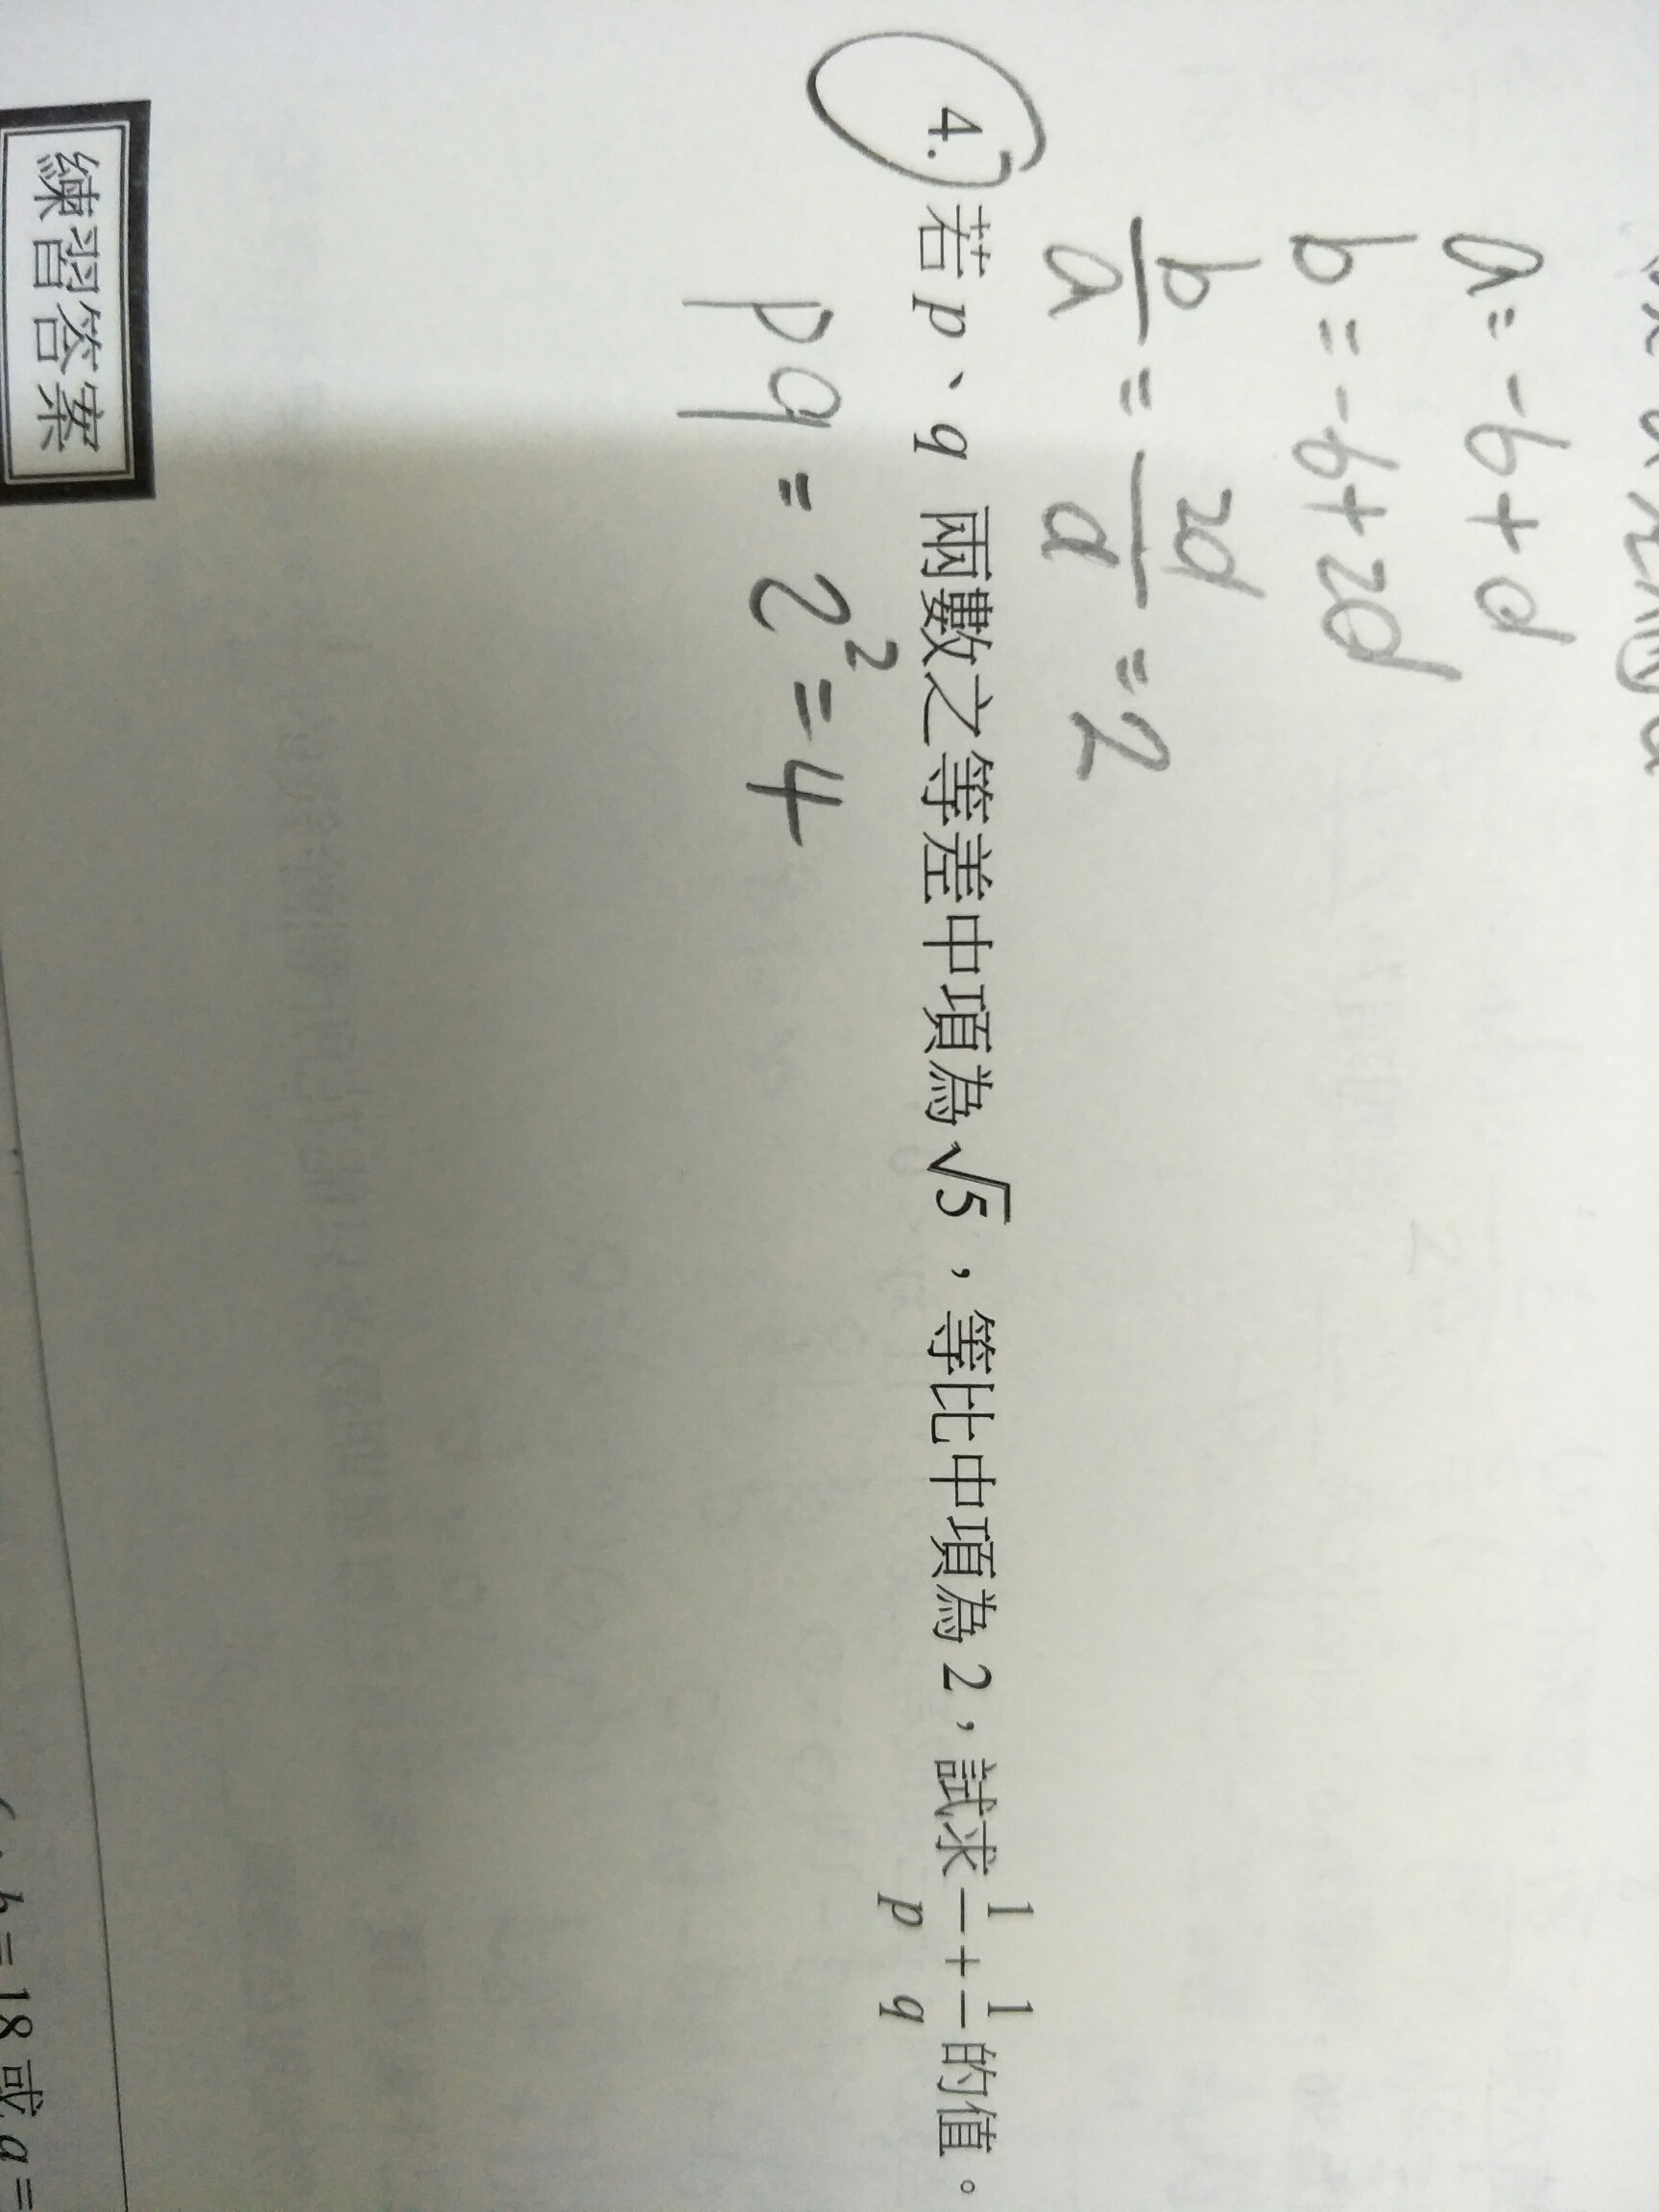 a = -6 + d
b = -6 + 2d
b/a = 2d/d = 2
4. 若 p、q 兩數之等差中項為√5，等比中項為 2，試求 1/p + 1/q 的值。
pq = 2² = 4
練習答案
b = 18 或 a =